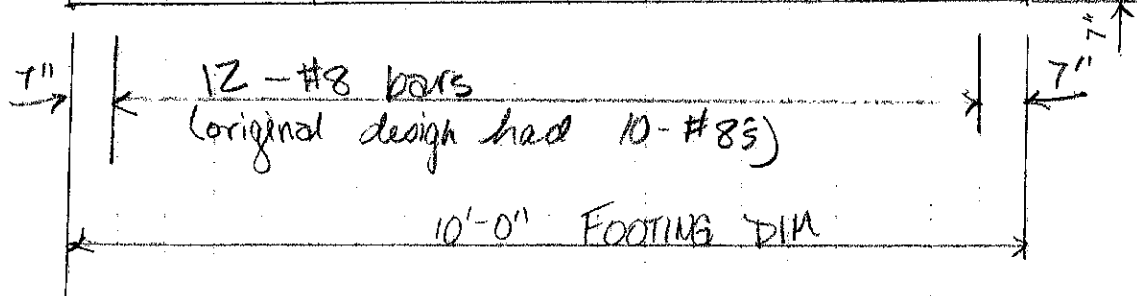 7"
7"
12-#8 bars
7"
(original design had 10-#8s)
10'-0" FOOTING DIM